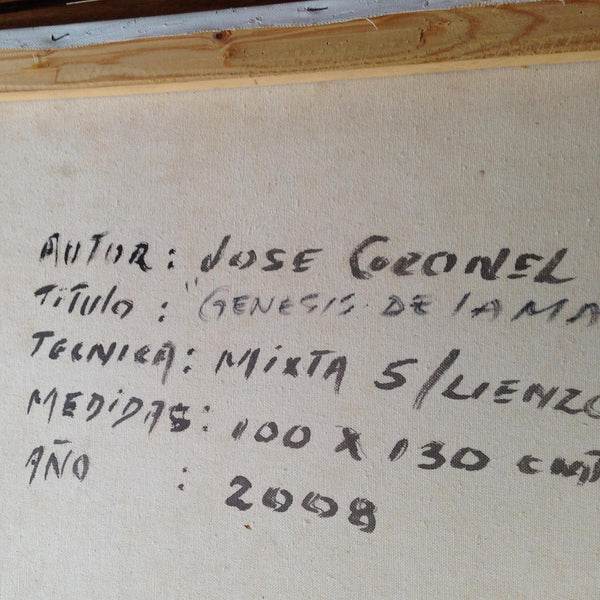 AUTOR: JOSE CORONEL
TíTULO: "GENESIS DE LA MA
TECNICA: MIXTA S/LIENZO
MEDIDAS: 100 X 130 CMT
AÑO : 2008